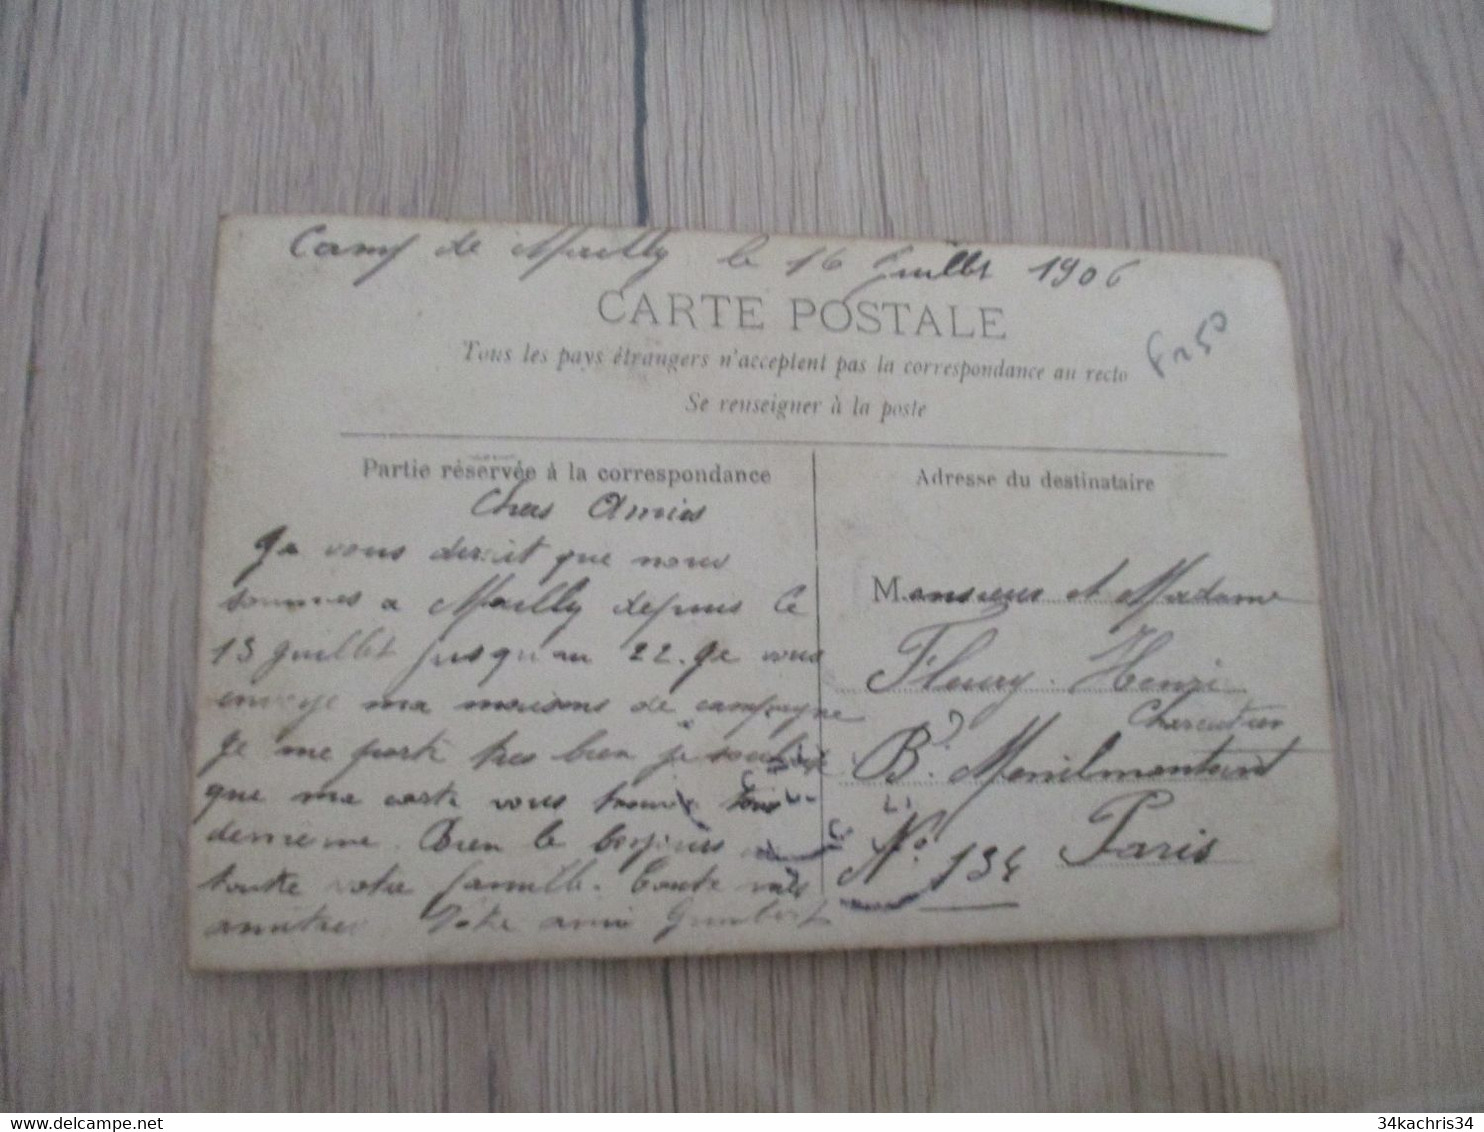 Camp de Mailly le 16 Juillet 1906
CARTE POSTALE
Tous les pays étrangers n'acceptent pas la correspondance au recto
Se renseigner à la poste
Partie réservée à la correspondance
Chers Amies
Je vous decrit que nous
sommes a Mailly depuis le
13 Juillet jusqu'au 22. Je vous
envoye ma maisons de campagne
Je me porte tres bien je souhaite
que ma carte vous trouve tous
de meme. Bien le bonjours a
toute votre famille. Toute mes
amities Votre ami Gumbert
Adresse du destinataire
Monsieur et Madame
Fleury. Henri
Charcutier
Bd. Menilmontant
No. 134 Paris
34kachris34